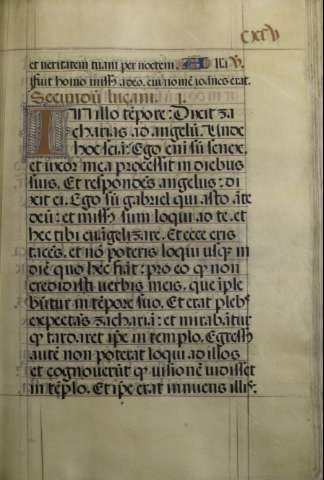 cxcv
et veritatem tuam per noctem. Ali. V.
Fuit homo miss9 a deo, cui nomē ioānes erat.
Secundū lucam. i.
In illo tēpore: Dixit za
charias ad angelū. Unde
hoc sciā? Ego eni sū senex,
et uxor mea processit in diebus
suis. Et respondēs angelus: di
xit ei. Ego sū gabriel qui asto āte
deū: et miss9 sum loqui ad te, et
hec tibi evāgelizare. Et ecce eris
tacēs, et nō poteris loqui usq; in
diē quo hec fiāt: pro eo q non
credidisti verbis meis, que iple
būtur in tēpore suo. Et erat plebs
expectās zachariā: et mirabātur
q tardaret ipe in templo. Egress9
autē non poterat loqui ad illos
et cognoverūt q visionē vidisset
in tēplo. Et ipe erat innuens illis,